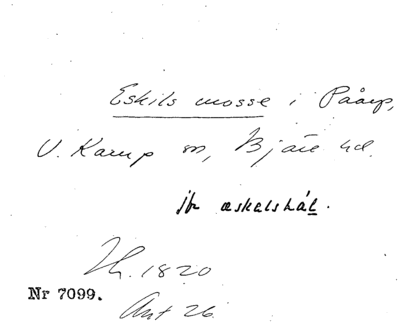 Eskils mosse i Påarp,
V. Karup sn, Bjäre hd.
jfr æskelshål.
Th. 1820
Nr 7099.
Ant 26.